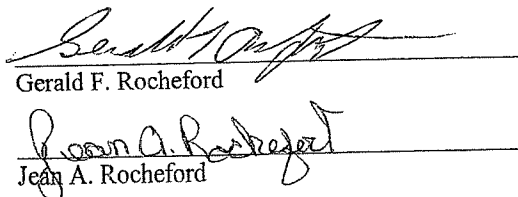 Gerald
Gerald F. Rocheford
Jean A. Rocheford
Jean A. Rocheford